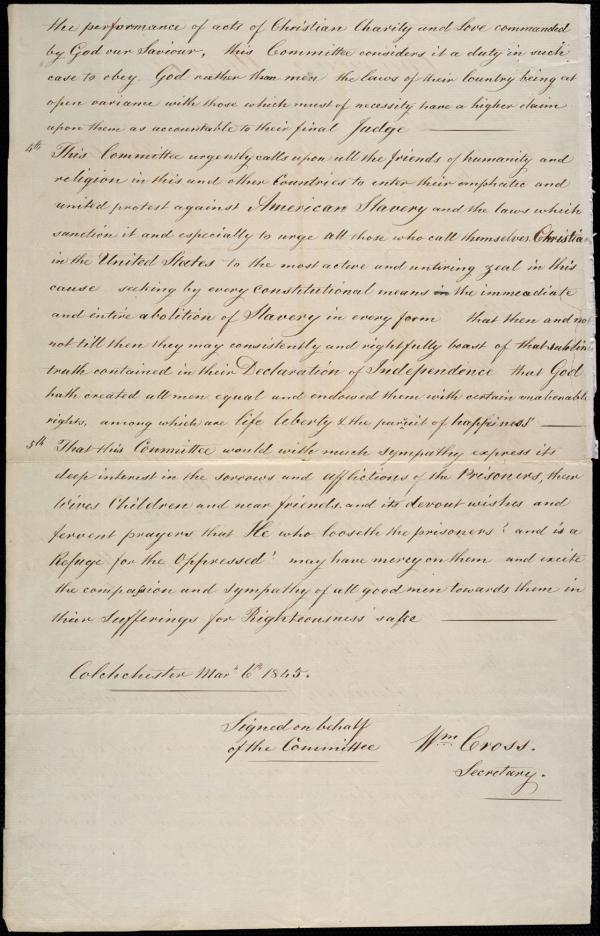 the performance of acts of Christian Charity and Love commanded
by God our Saviour, this Committee considers it a duty in such
case to obey God rather than men the laws of their Country being at
open variance with those which must of necessity have a higher claim
upon them as accountable to their final Judge
4th This Committee urgently calls upon all the friends of humanity and
religion in this and other Countries to enter their emphatic and
united protest against American Slavery and the laws which
sanction it and especially to urge all those who call themselves Christia
in the United States to the most active and untiring zeal in this
cause seeking by every constitutional means in the immediate
and entire abolition of Slavery in every form that then and not
not till then they may consistently and rightfully boast of that sublim
truth contained in their Declaration of Independence that God
hath created all men equal and endowed them with certain unalienable
rights, among which are life liberty & the pursuit of happiness"
5th That this Committee would with much sympathy express its
deep interest in the sorrows and afflictions of the Prisoners, their
Wives Children and near friends and its devout wishes and
fervent prayers that He who looseth the prisoners' and is a
Refuge for the Oppressed' may have mercy on them and excite
the compassion and sympathy of all good men towards them in
their Sufferings for Righteousness' sake
Colchchester Mar. 6th 1845.
Signed on behalf
of the Committee
Wm Cross.
Secretary.